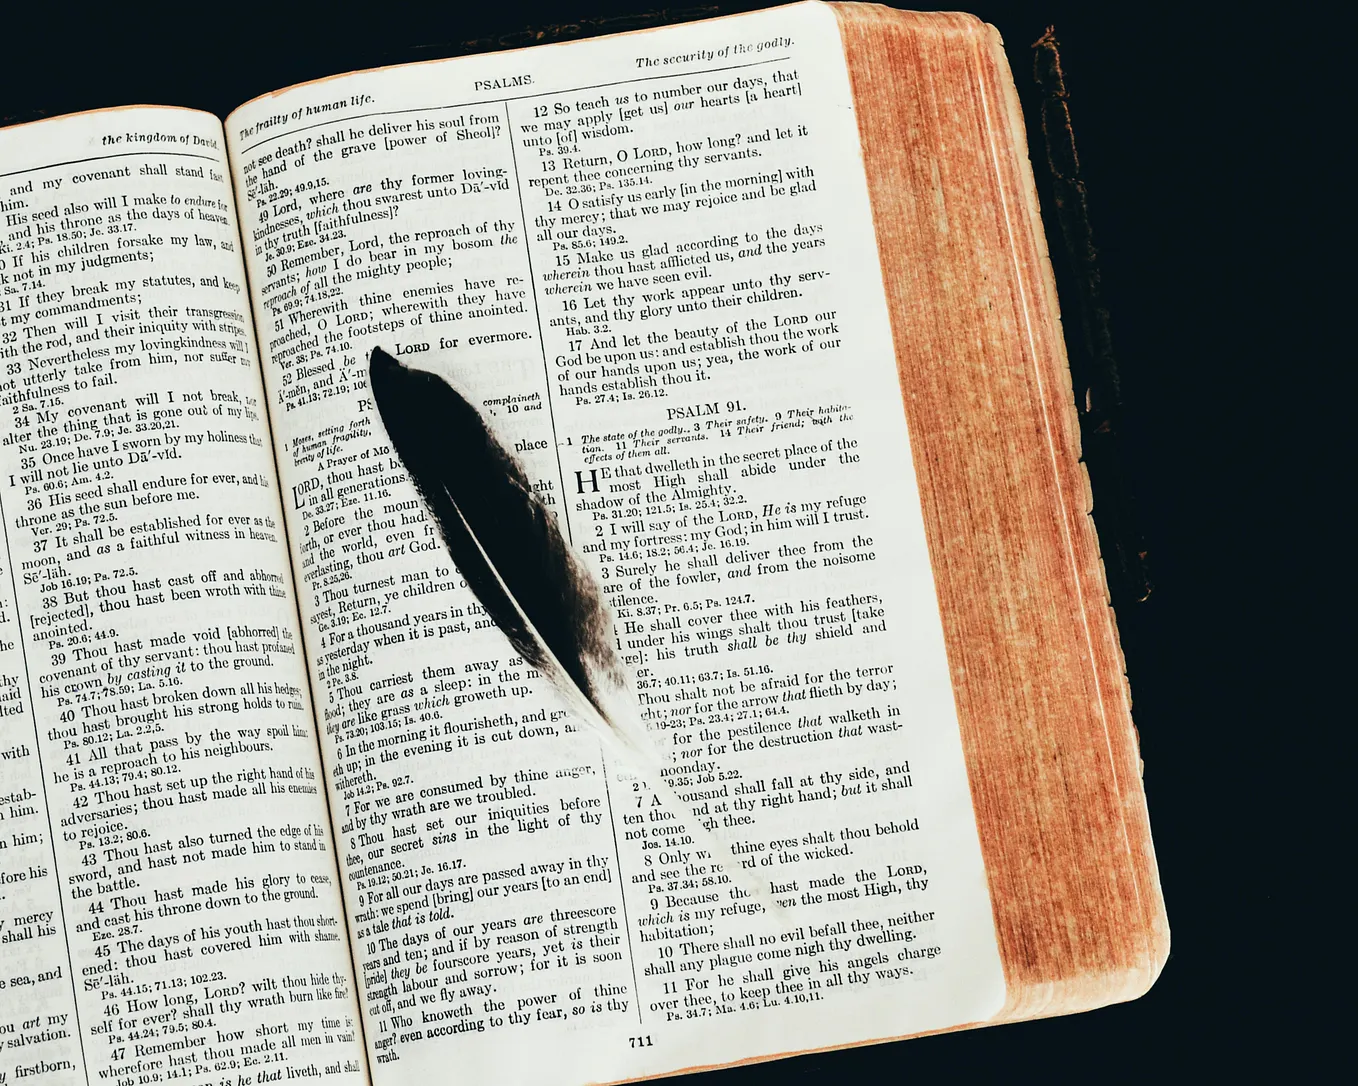 the kingdom of David.
and my covenant shall stand fast
him.
His seed also will I make to endure for
, and his throne as the days of heaven.
Ki. 2.4; Ps. 18.50; Je. 33.17.
0 If his children forsake my law, and
k not in my judgments;
Sa. 7.14.
31 If they break my statutes, and keep
t my commandments;
32 Then will I visit their transgression
ith the rod, and their iniquity with stripes.
33 Nevertheless my lovingkindness will I
not utterly take from him, nor suffer my
faithfulness to fail.
2 Sa. 7.15.
34 My covenant will I not break, nor
alter the thing that is gone out of my lips.
Nu. 23.19; De. 7.9; Je. 33.20,21.
35 Once have I sworn by my holiness that
I will not lie unto Dā′-vid.
Ps. 60.6; Am. 4.2.
36 His seed shall endure for ever, and his
throne as the sun before me.
Ver. 29; Ps. 72.5.
37 It shall be established for ever as the
moon, and as a faithful witness in heaven.
Sē′-lāh.
Job 16.19; Ps. 72.5.
38 But thou hast cast off and abhorred
[rejected], thou hast been wroth with thine
anointed.
Ps. 20.6; 44.9.
39 Thou hast made void [abhorred] the
covenant of thy servant: thou hast profaned
his crown by casting it to the ground.
Ps. 74.7; 78.59; La. 5.16.
40 Thou hast broken down all his hedges;
thou hast brought his strong holds to ruin.
Ps. 80.12; La. 2.2,5.
41 All that pass by the way spoil him:
he is a reproach to his neighbours.
Ps. 44.13; 79.4; 80.12.
42 Thou hast set up the right hand of his
adversaries; thou hast made all his enemies
to rejoice.
Ps. 13.2; 80.6.
43 Thou hast also turned the edge of his
sword, and hast not made him to stand in
the battle.
44 Thou hast made his glory to cease,
and cast his throne down to the ground.
Eze. 28.7.
45 The days of his youth hast thou short-
ened: thou hast covered him with shame.
Sē′-lāh.
Ps. 44.15; 71.13; 102.23.
46 How long, LORD? wilt thou hide thy-
self for ever? shall thy wrath burn like fire?
Ps. 44.24; 79.5; 80.4.
47 Remember how short my time is:
wherefore hast thou made all men in vain?
Job 10.9; 14.1; Ps. 62.9; Ec. 2.11.
is he that liveth, and shall
The frailty of human life.
PSALMS.
The security of the godly.
not see death? shall he deliver his soul from
the hand of the grave [power of Sheol]?
Sē′-lāh.
Ps. 22.29; 49.9,15.
49 Lord, where are thy former loving-
kindnesses, which thou swarest unto Dā′-vid
in thy truth [faithfulness]?
Je. 30.9; Eze. 34.23.
50 Remember, Lord, the reproach of thy
servants; how I do bear in my bosom the
reproach of all the mighty people;
Ps. 69.9; 74.18,22.
51 Wherewith thine enemies have re-
proached, O LORD; wherewith they have
reproached the footsteps of thine anointed.
Ver. 38; Ps. 74.10.
52 Blessed be LORD for evermore.
Ā′-mĕn, and Ā′-m
Ps. 41.13; 72.19; 106
PS
1 Moses, setting forth complaineth
of human fragility, , 10 and
brevity of life.
A Prayer of Mo
LORD, thou hast b place
in all generations.
De. 33.27; Eze. 11.16.
2 Before the moun ught
forth, or ever thou had
and the world, even fr
everlasting, thou art God.
Pr. 8.25,26.
3 Thou turnest man to
sayest, Return, ye children o
Ge. 3.19; Ec. 12.7.
4 For a thousand years in thy
as yesterday when it is past, and
in the night.
2 Pe. 3.8.
5 Thou carriest them away as
flood; they are as a sleep: in the m
they are like grass which groweth up.
Ps. 73.20; 103.15; Is. 40.6.
6 In the morning it flourisheth, and gro
eth up; in the evening it is cut down, a
withereth.
Job 14.2; Ps. 92.7.
7 For we are consumed by thine anger,
and by thy wrath are we troubled.
8 Thou hast set our iniquities before
thee, our secret sins in the light of thy
countenance.
Ps. 19.12; 50.21; Je. 16.17.
9 For all our days are passed away in thy
wrath: we spend [bring] our years [to an end]
as a tale that is told.
10 The days of our years are threescore
years and ten; and if by reason of strength
[pride] they be fourscore years, yet is their
strength labour and sorrow; for it is soon
cut off, and we fly away.
11 Who knoweth the power of thine
anger? even according to thy fear, so is thy
wrath.
12 So teach us to number our days, that
we may apply [get us] our hearts [a heart]
unto [of] wisdom.
Ps. 39.4.
13 Return, O LORD, how long? and let it
repent thee concerning thy servants.
De. 32.36; Ps. 135.14.
14 O satisfy us early [in the morning] with
thy mercy; that we may rejoice and be glad
all our days.
Ps. 85.6; 149.2.
15 Make us glad according to the days
wherein thou hast afflicted us, and the years
wherein we have seen evil.
16 Let thy work appear unto thy serv-
ants, and thy glory unto their children.
Hab. 3.2.
17 And let the beauty of the LORD our
God be upon us: and establish thou the work
of our hands upon us; yea, the work of our
hands establish thou it.
Ps. 27.4; Is. 26.12.
PSALM 91.
1 The state of the godly. 3 Their safety. 9 Their habita-
tion. 11 Their servants. 14 Their friend; with the
effects of them all.
HE that dwelleth in the secret place of the
most High shall abide under the
shadow of the Almighty.
Ps. 31.20; 121.5; Is. 25.4; 32.2.
2 I will say of the LORD, He is my refuge
and my fortress: my God; in him will I trust.
Ps. 14.6; 18.2; 56.4; Je. 16.19.
3 Surely he shall deliver thee from the
are of the fowler, and from the noisome
stilence.
Ki. 8.37; Pr. 6.5; Ps. 124.7.
He shall cover thee with his feathers,
under his wings shalt thou trust [take
ge]: his truth shall be thy shield and
er.
36.7; 40.11; 63.7; Is. 51.16.
Thou shalt not be afraid for the terror
ght; nor for the arrow that flieth by day;
5.19-23; Ps. 23.4; 27.1; 64.4.
for the pestilence that walketh in
; nor for the destruction that wast-
noonday.
9.35; Job 5.22.
7 A ousand shall fall at thy side, and
ten thou nd at thy right hand; but it shall
not come gh thee.
Jos. 14.10.
8 Only wi thine eyes shalt thou behold
and see the re rd of the wicked.
Ps. 37.34; 58.10.
9 Because tho hast made the LORD,
which is my refuge, ven the most High, thy
habitation;
10 There shall no evil befall thee, neither
shall any plague come nigh thy dwelling.
11 For he shall give his angels charge
over thee, to keep thee in all thy ways.
Ps. 34.7; Ma. 4.6; Lu. 4.10,11.
711